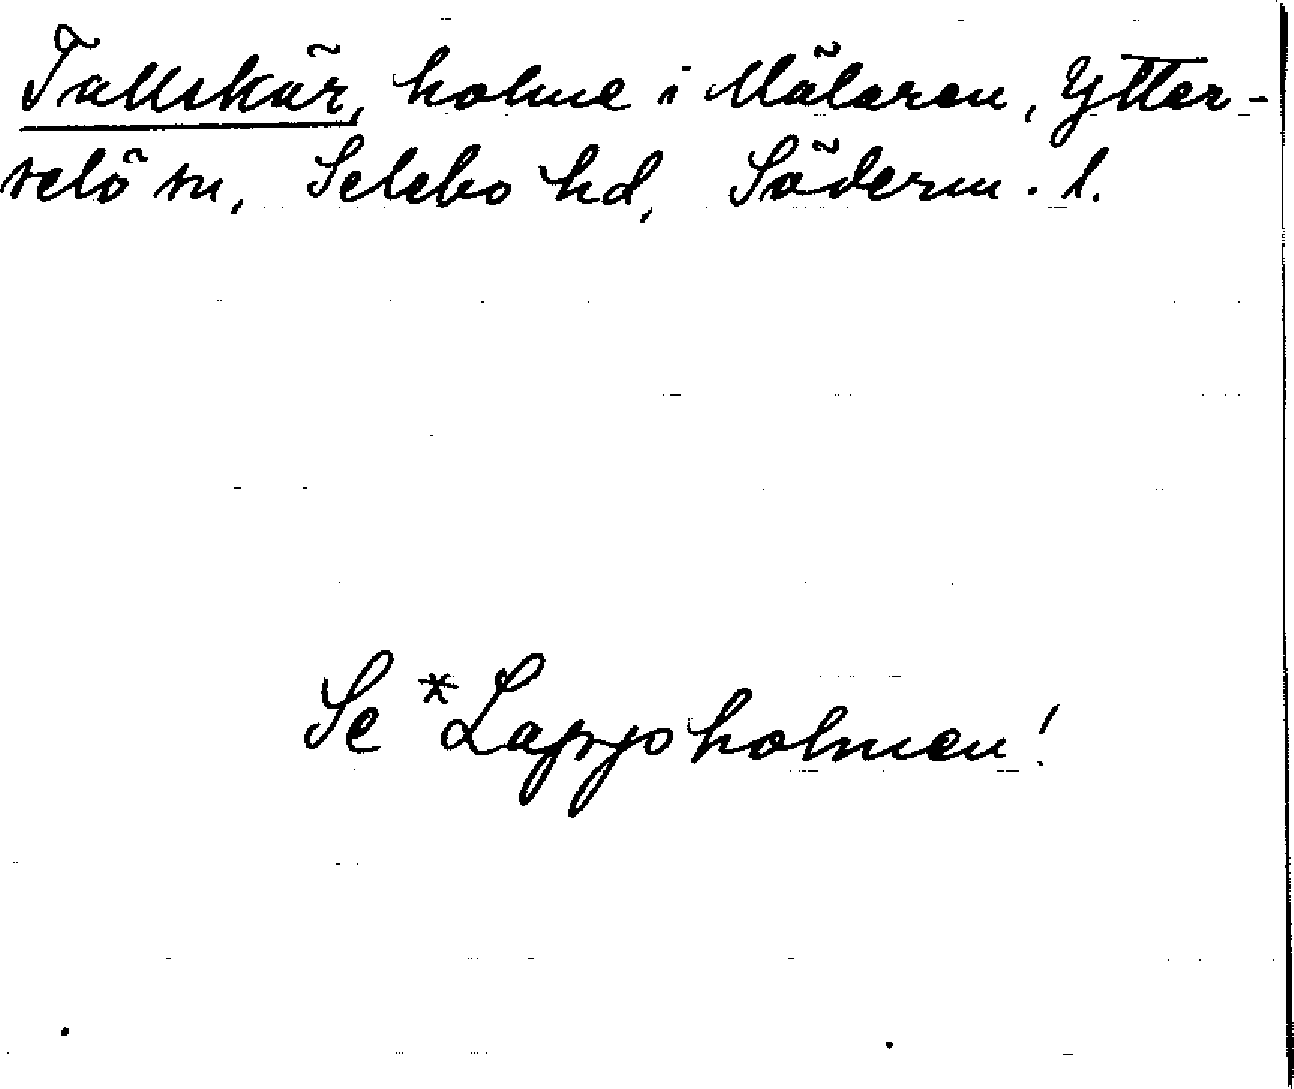 Tallskär, holme i Mälaren, Ytter-
selö sn, Selebo hd, Söderm. l.
Se *Lappholmen!